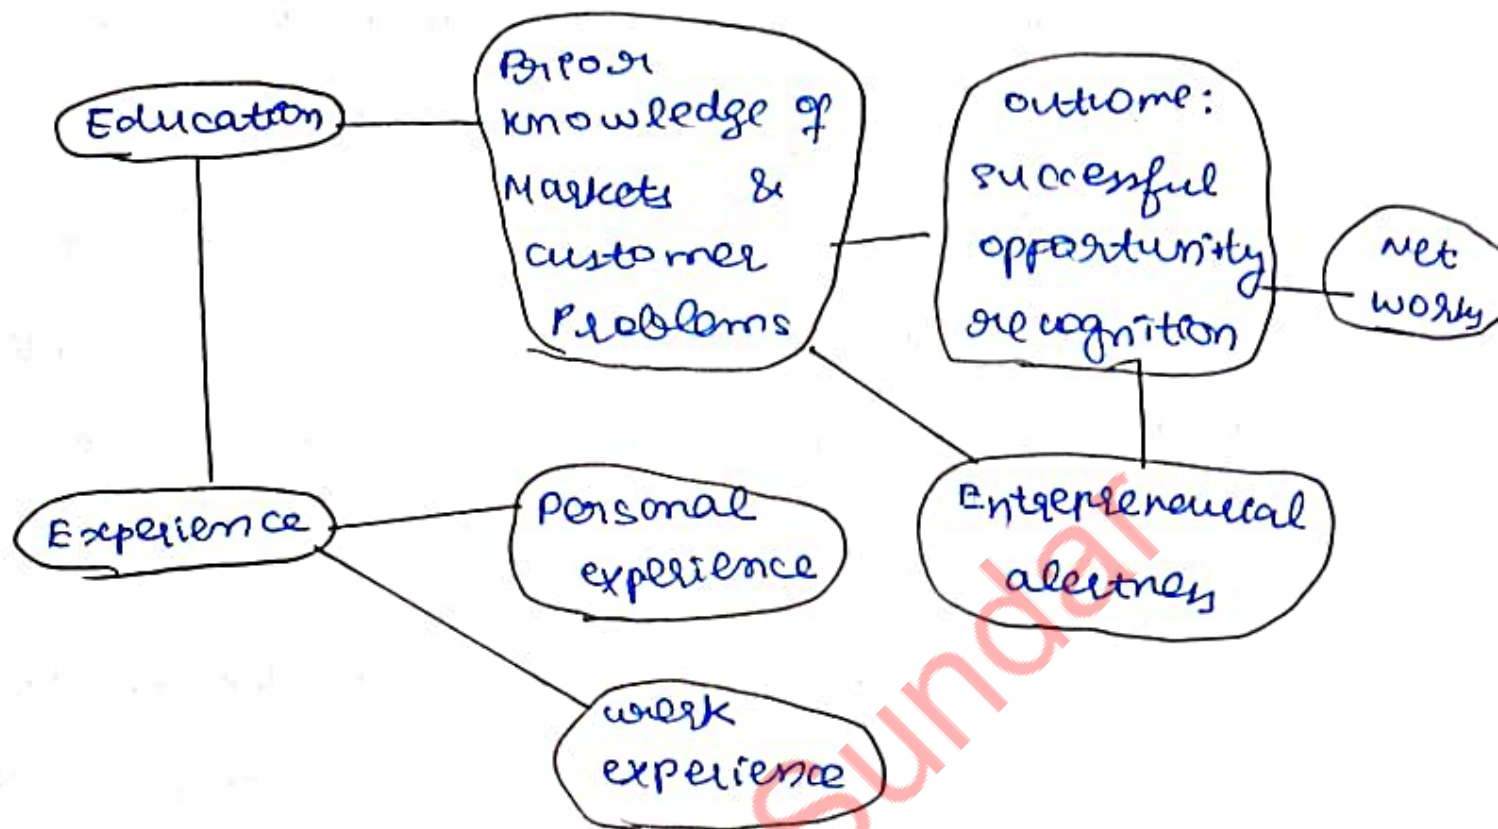 Education
Prior
knowledge of
Markets &
customer
Problems
outcome:
successful
opportunity
recognition
Net
works
Experience
Personal
experience
Entrepreneurial
alertness
work
experience
Sundar